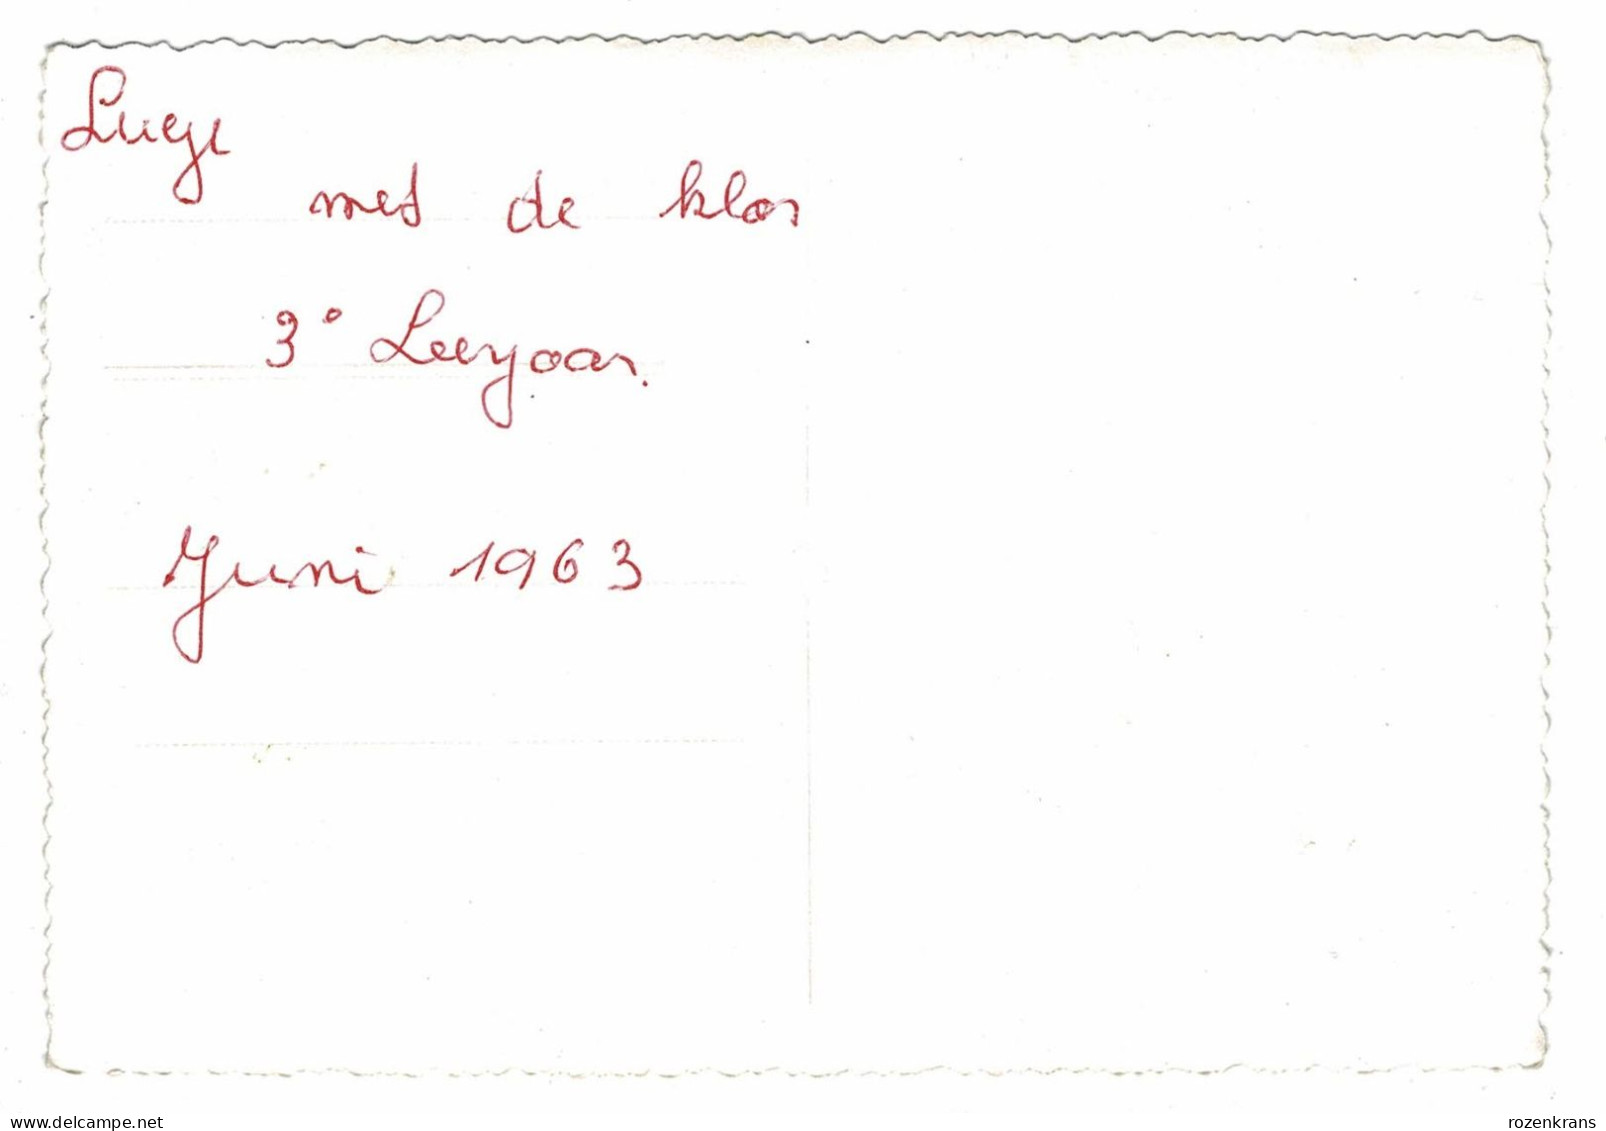 met de klas
3° Leerjaar.
Juni 1963
delcampe.net
rozenkrans